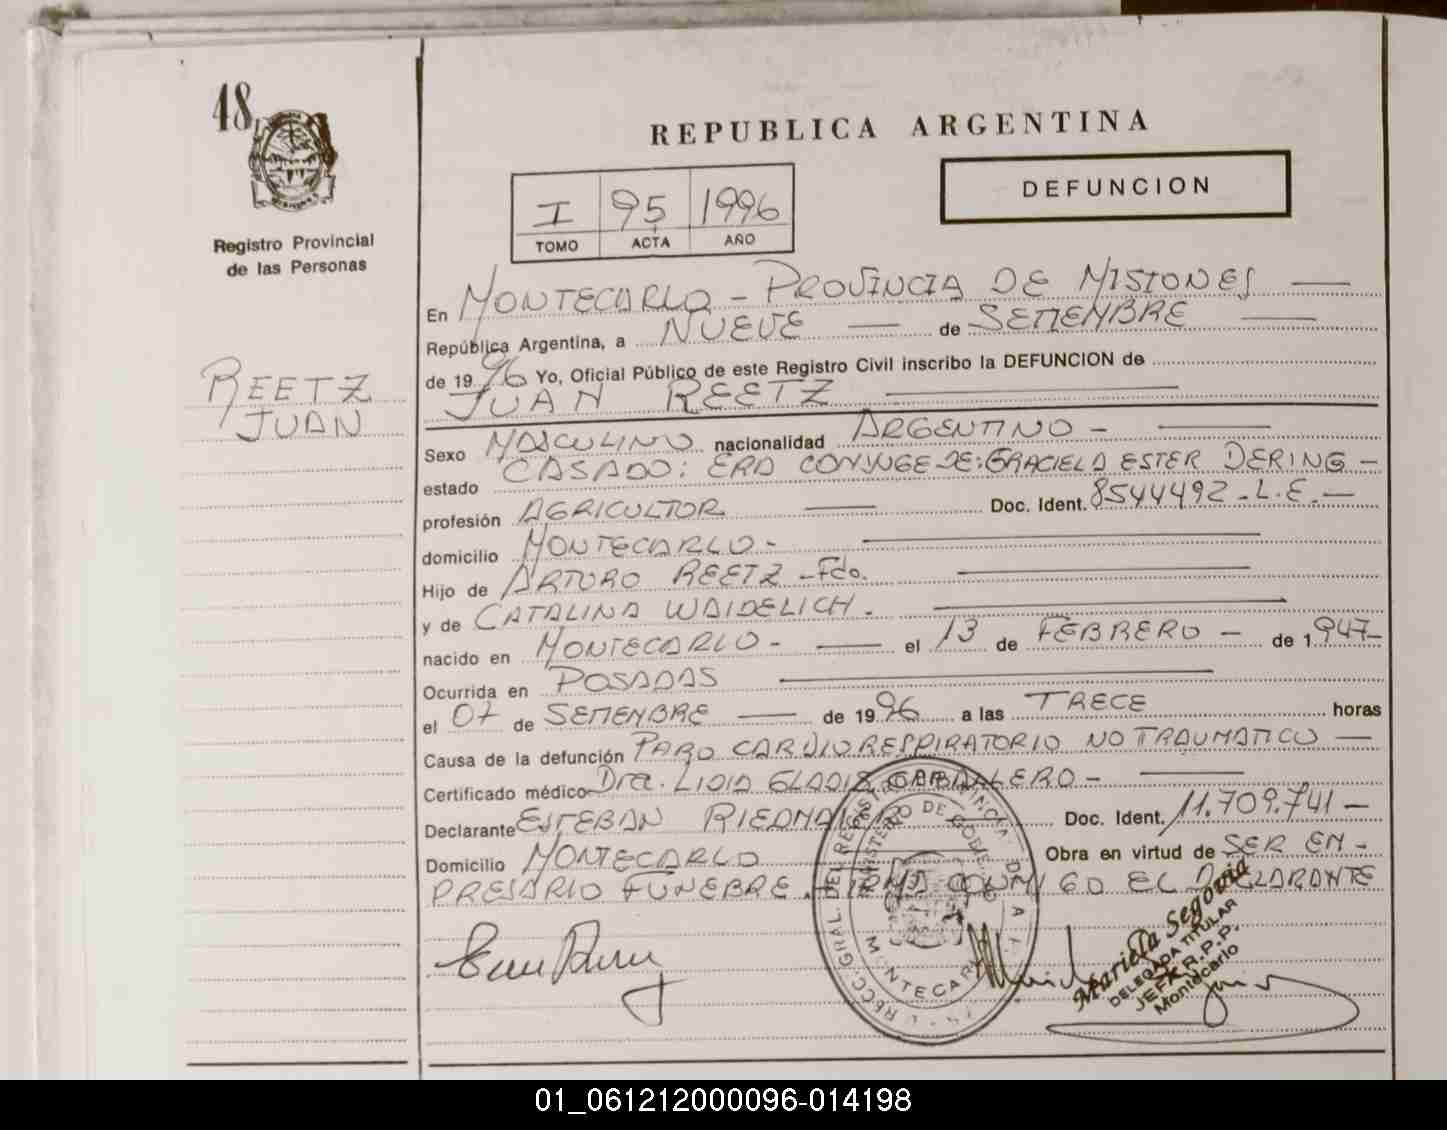 48
Registro Provincial
de las Personas
REETZ
JUAN
REPUBLICA ARGENTINA
DEFUNCION
I 95 1996
TOMO ACTA AÑO
En MONTECARLO - PROVINCIA DE MISIONES
República Argentina, a NUEVE de SETIEMBRE
de 1996 Yo, Oficial Público de este Registro Civil inscribo la DEFUNCION de
JUAN REETZ
Sexo MASCULINO nacionalidad ARGENTINO -
estado CASADO: ERA CONYUGE DE: GRACIELA ESTER DERING -
profesión AGRICULTOR Doc. Ident. 8544492 - L.E. -
domicilio MONTECARLO -
Hijo de ARTURO REETZ - Fdo.
y de CATALINA WAIDELICH -
nacido en MONTECARLO - el 13 de FEBRERO - de 1.947 -
Ocurrida en POSADAS
el 07 de SETIEMBRE de 1996 a las TRECE horas
Causa de la defunción PARO CARDIORESPIRATORIO NO TRAUMATICO
Certificado médico Dra. LIDIA GLADIS CABALLERO -
Declarante ESTEBAN Doc. Ident. 11.709.741 -
Domicilio MONTECARLO Obra en virtud de SER EM-
PRESARIO FUNEBRE. FIRMA CONMIGO EL DECLARANTE
Mariela Segovia
DELEGADA TITULAR
JEFA R.P.P.
Montecarlo
01_061212000096-014198